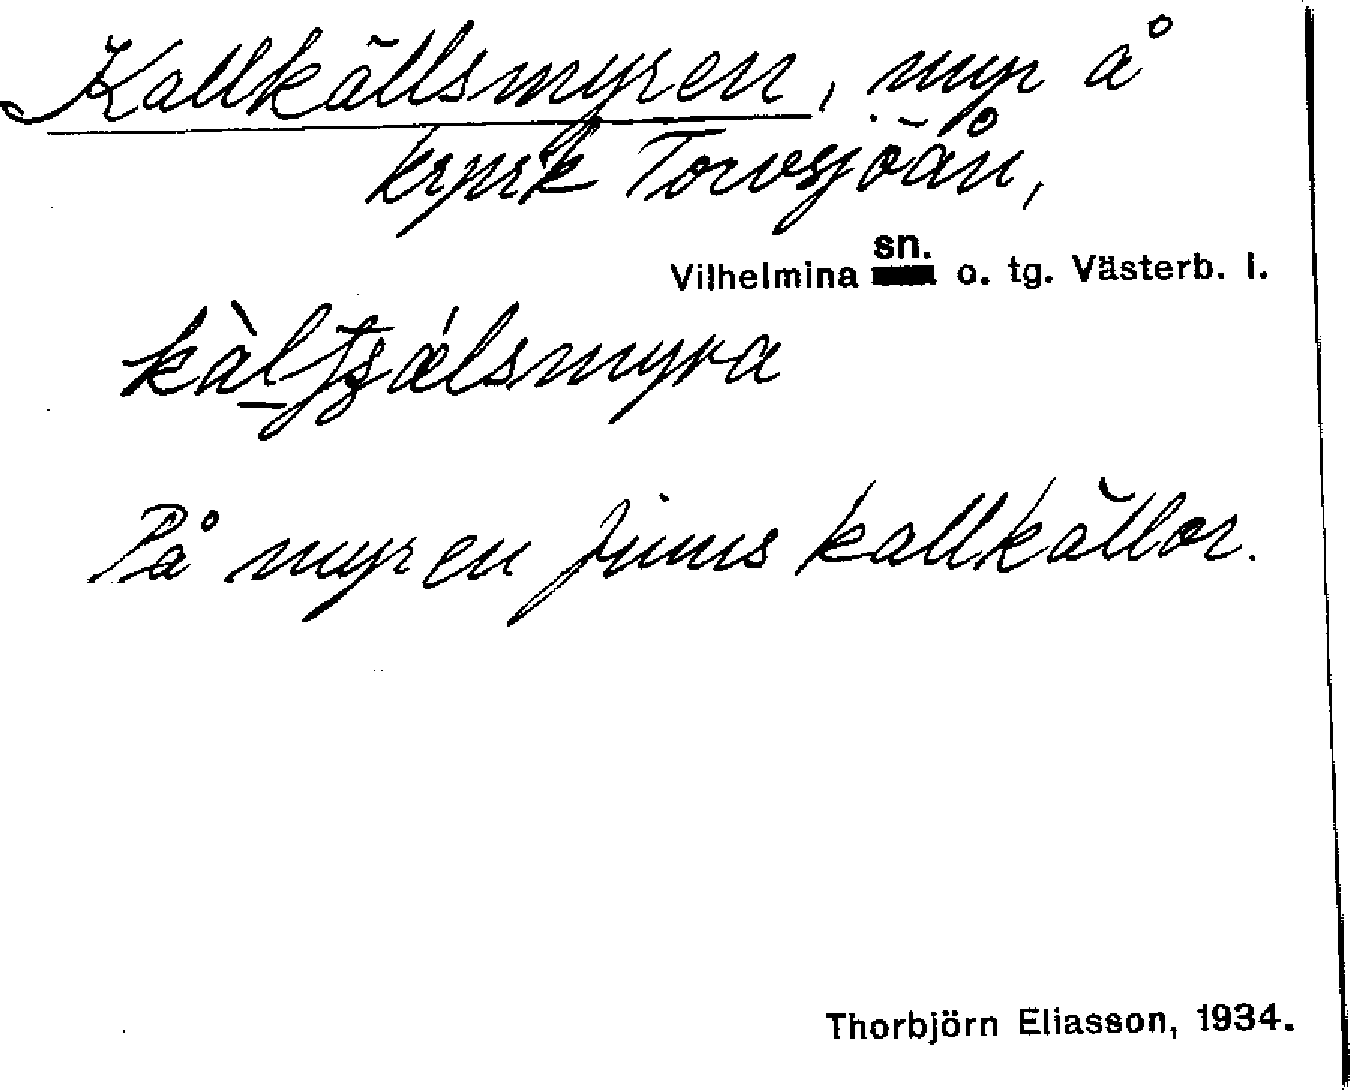 Kallkällsmyren, myr å
krpsk Torvsjöån,
Vilhelmina sn. o. tg. Västerb. l.
kàlʈʂǽlsmyra
På myren finns kallkällor.
Thorbjörn Eliasson, 1934.